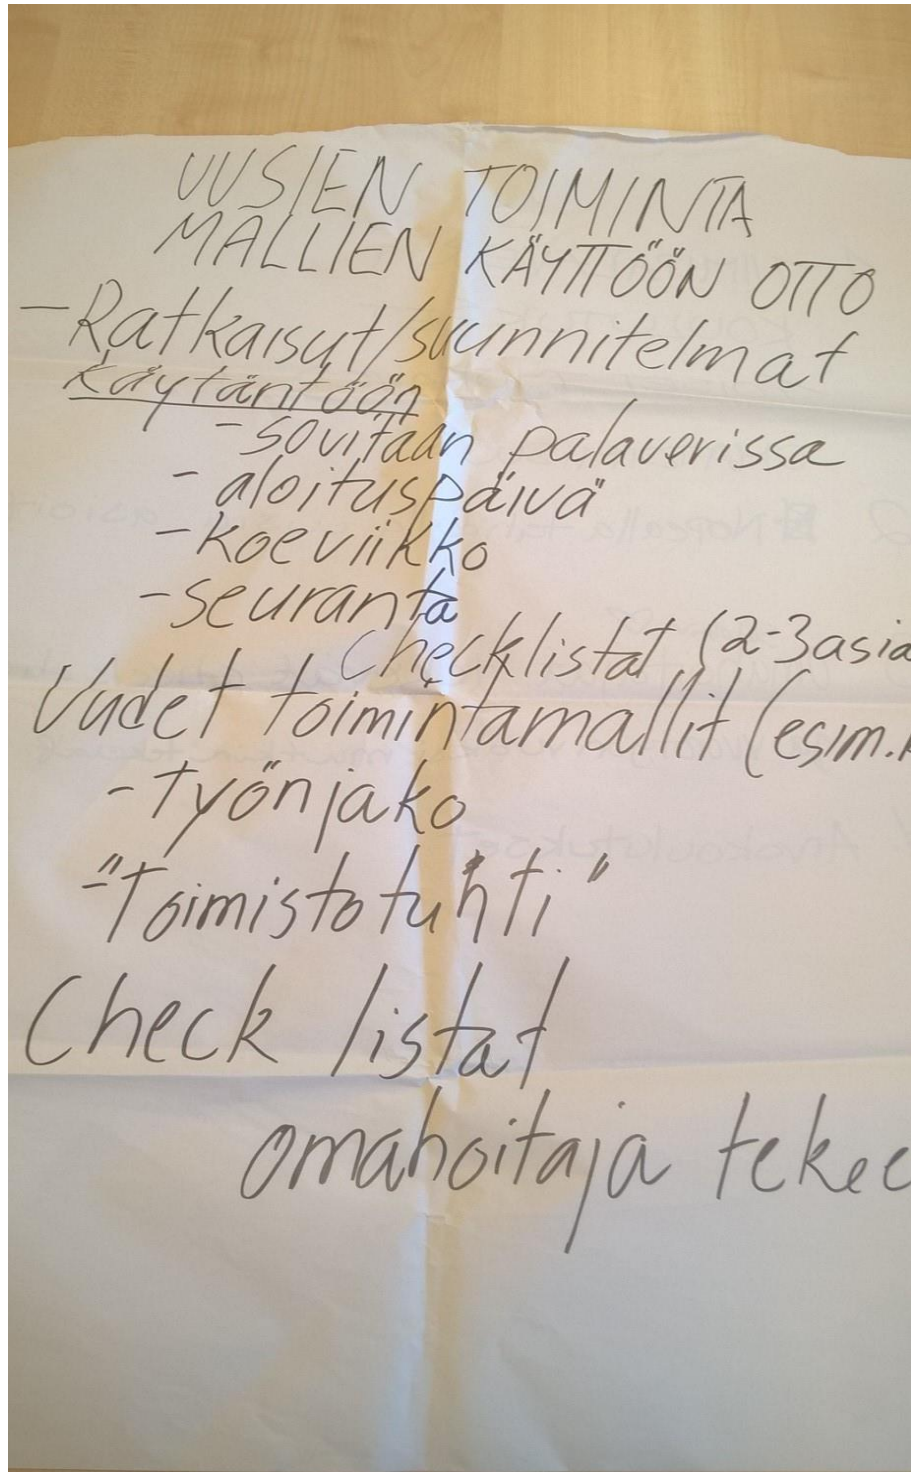 UUSIEN TOIMINTA
MALLIEN KÄYTTÖÖN OTTO
- Ratkaisut/suunnitelmat
käytäntöön
- sovitaan palaverissa
- aloituspäivä
- koeviikko
- seuranta
Checklistat (2-3 asia
Uudet toimintamallit (esim.
- Työnjako
- "Toimistotuhti"
Check listat
omahoitaja tekee